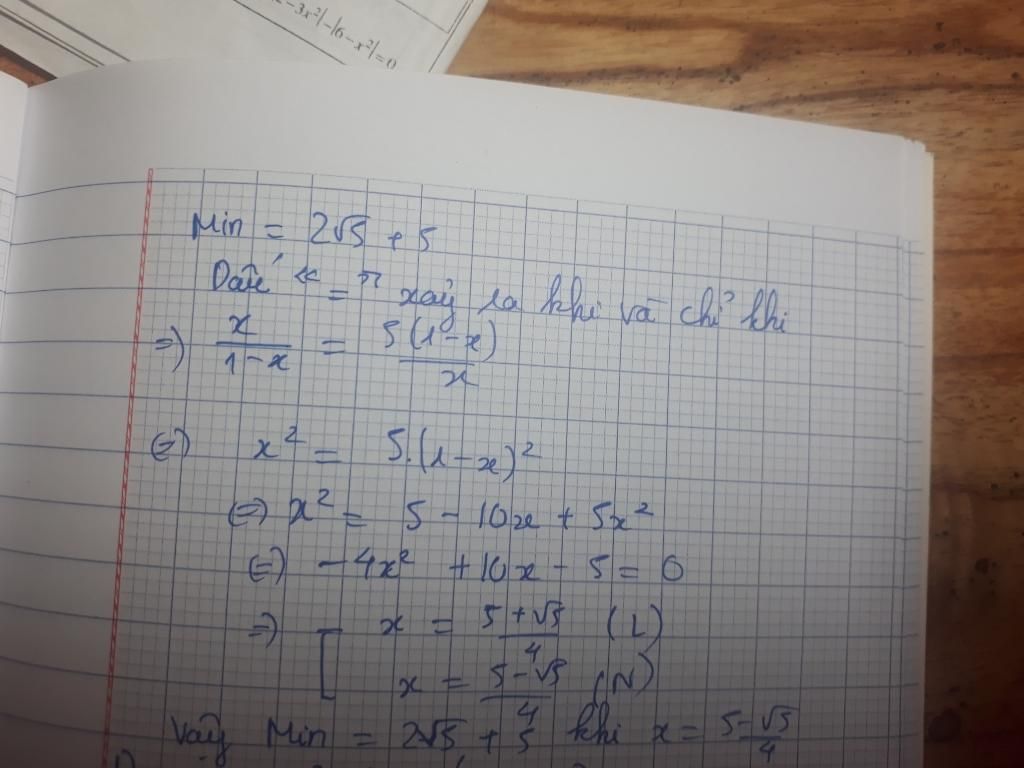 -3x²|-|6-x²|=0
Min = 2√5 + 5
Dấu "=" xảy ra khi và chỉ khi
=> x/(1-x) = 5(1-x)/x
<=> x² = 5.(1-x)²
<=> x² = 5 - 10x + 5x²
<=> -4x² + 10x - 5 = 0
=> [ x = (5+√5)/4 (L)
x = (5-√5)/4 (N)
Vậy Min = 2√5 + 5 khi x = (5-√5)/4